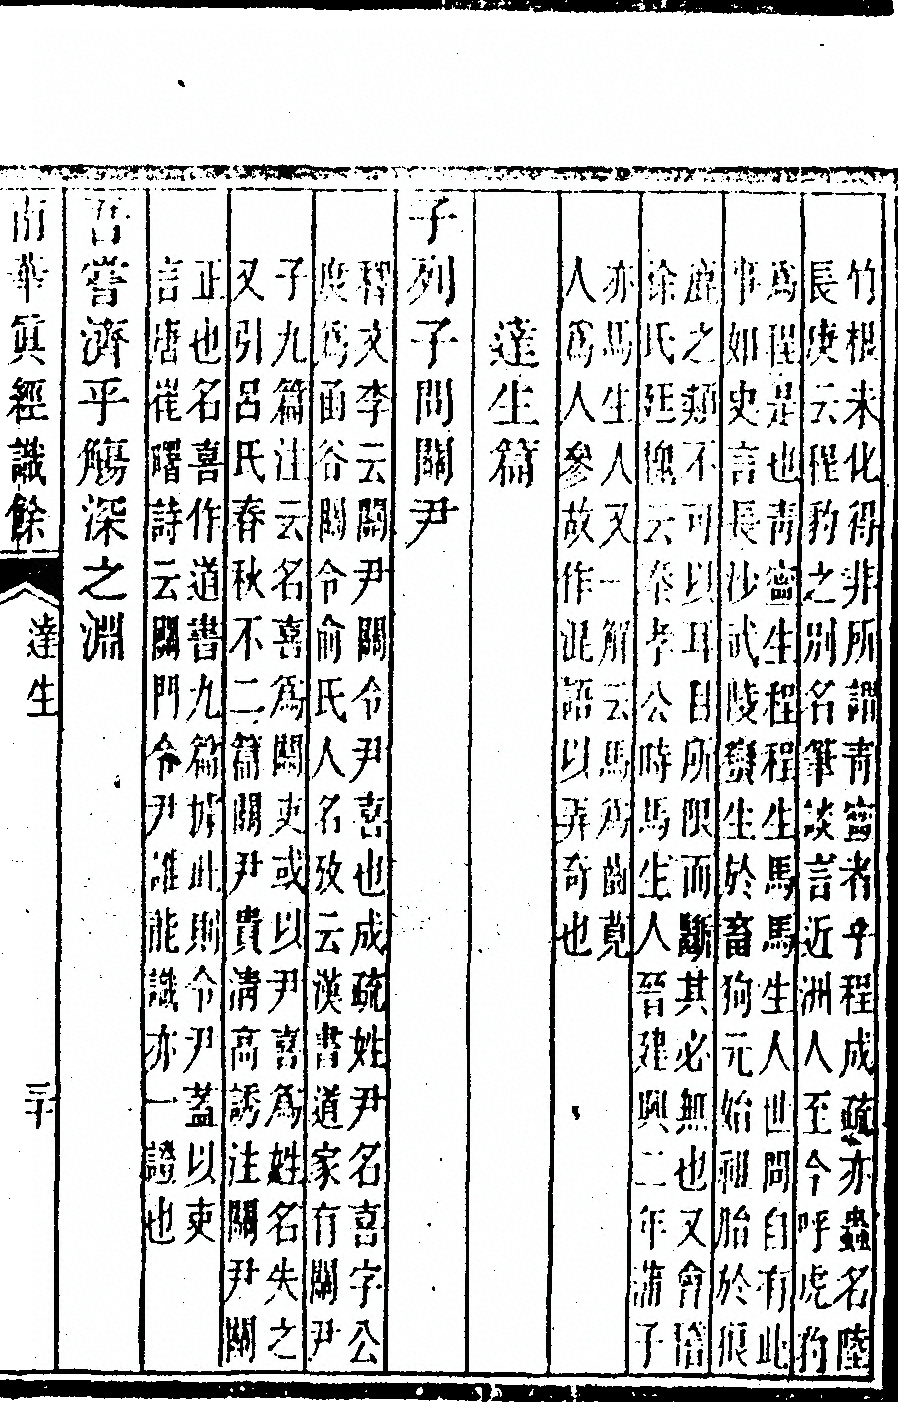 竹根未化得非所謂青寧者乎程成疏亦蟲名陸
長庚云程豹之別名筆談言近洲人至今呼虎豹
爲程是也青寧生程程生馬馬生人世間自有此
事如史言長沙武陵蠻生於畜狗元始祖胎於狼
鹿之類不可以耳目所限而斷其必無也又會稽
徐氏廷槐云秦孝公時馬生人晉建興二年蒲子
亦馬生人又一解云馬爲齒莧
人爲人參故作混語以弄奇也
達生篇
子列子問關尹
釋文李云關尹關令尹喜也成疏姓尹名喜字公
度爲函谷關令俞氏人名攷云漢書道家有關尹
子九篇注云名喜爲關吏或以尹喜爲姓名失之
又引呂氏春秋不二篇關尹貴清高誘注關尹關
正也名喜作道書九篇據此則令尹蓋以吏
言唐崔曙詩云關門令尹誰能識亦一證也
吾嘗濟乎觴深之淵
南華眞經識餘
達生
三十